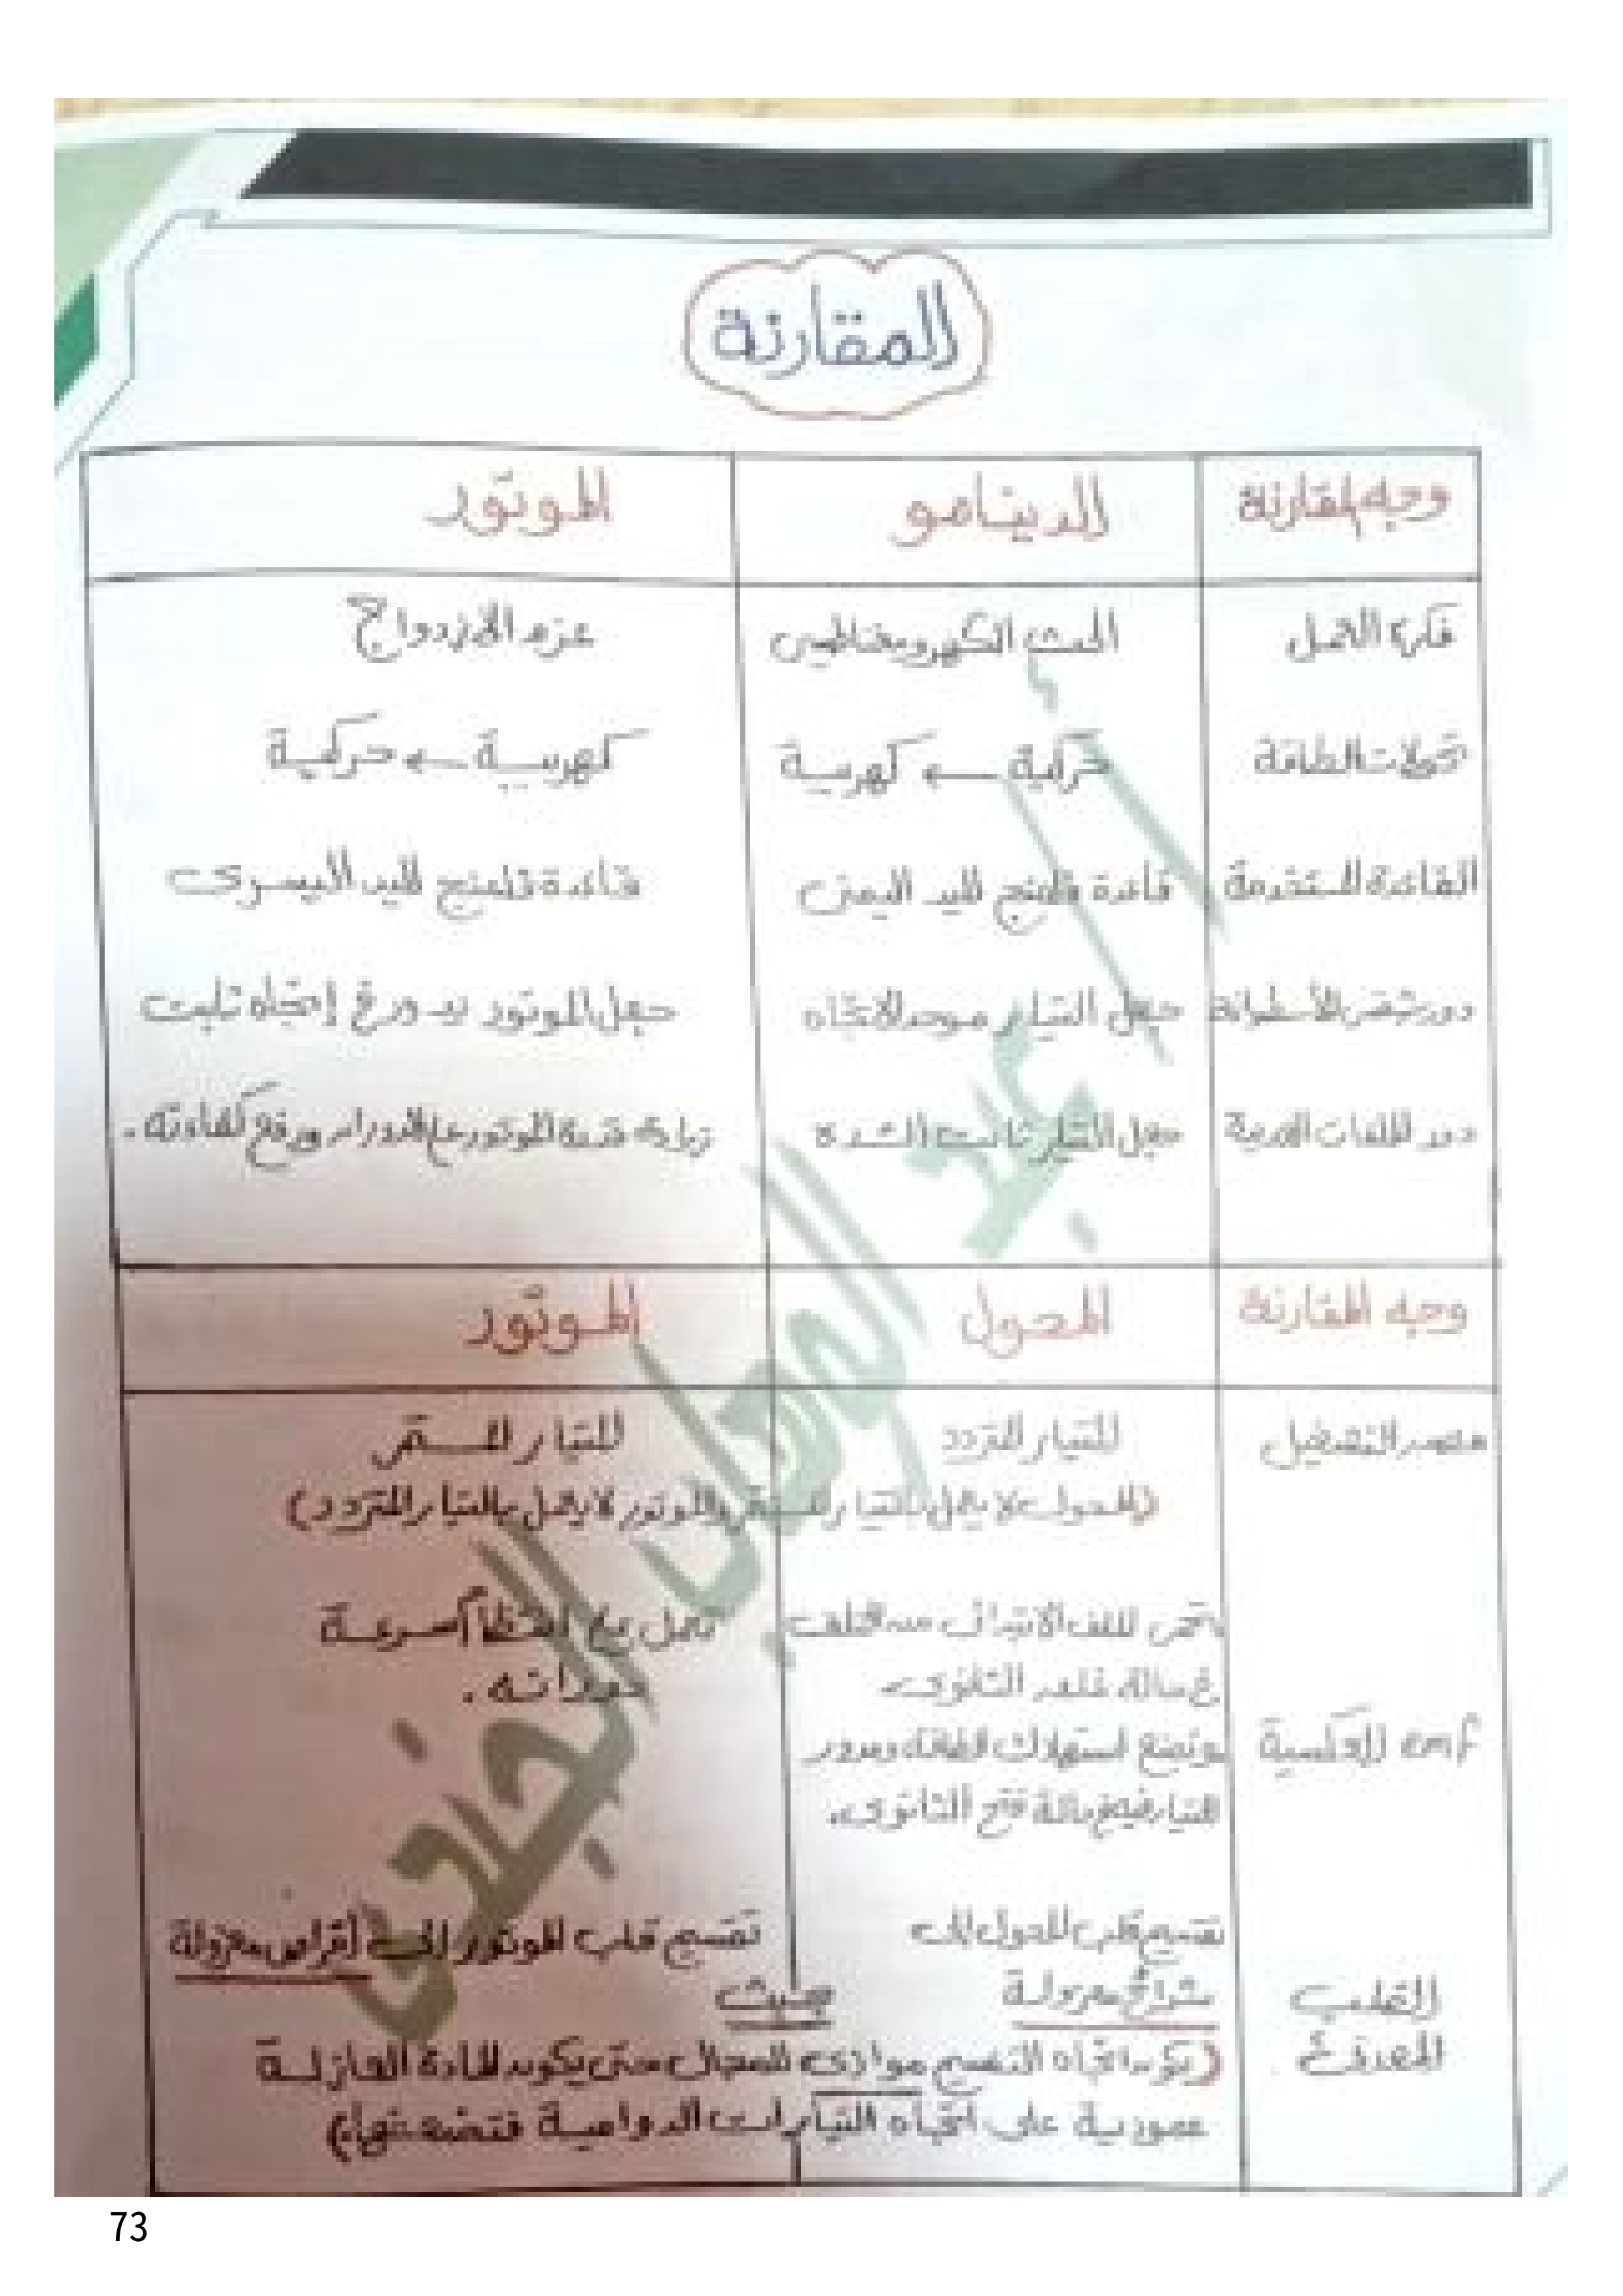 المقارنة
وجه المقارنة الدينامو الموتور
فكرة العمل الحث الكهرومغناطيسى عزم الازدواج
تحولات الطاقة حركية ← كهربية كهربية ← حركية
القاعدة المستخدمة قاعدة فلمنج لليد اليمنى قاعدة فلمنج لليد اليسرى
دور نصفى الأسطوانة جعل التيار موحد الاتجاه جعل الموتور يدور فى إتجاه ثابت
دور الملفات العديدة جعل التيار ثابت الشدة زيادة قدرة الموتور على الدوران ورفع كفاءته.
وجه المقارنة المحول الموتور
مصدر التشغيل التيار المتردد التيار المستمر
(المحول لا يعمل بالتيار المستمر والموتور لا يعمل بالتيار المتردد)
تحمى الملف الابتدائى من التلف تعمل على انتظام سرعة
فى حالة غلق الثانوى دورانه.
emf العكسية وتمنع استهلاك الطاقة ومرور
التيار فيه فى حالة فتح الثانوى.
تقسيم قلب المحول إلى تقسيم قلب الموتور إلى أقراص معزولة
القلب شرائح معزولة بحيث
المعدنى (يكون اتجاه التقسيم موازى للمجال حتى يكون المادة العازلة
عمودية على اتجاه التيارات الدوامية فتضعفها)
عبد الرحمن الجندى
73